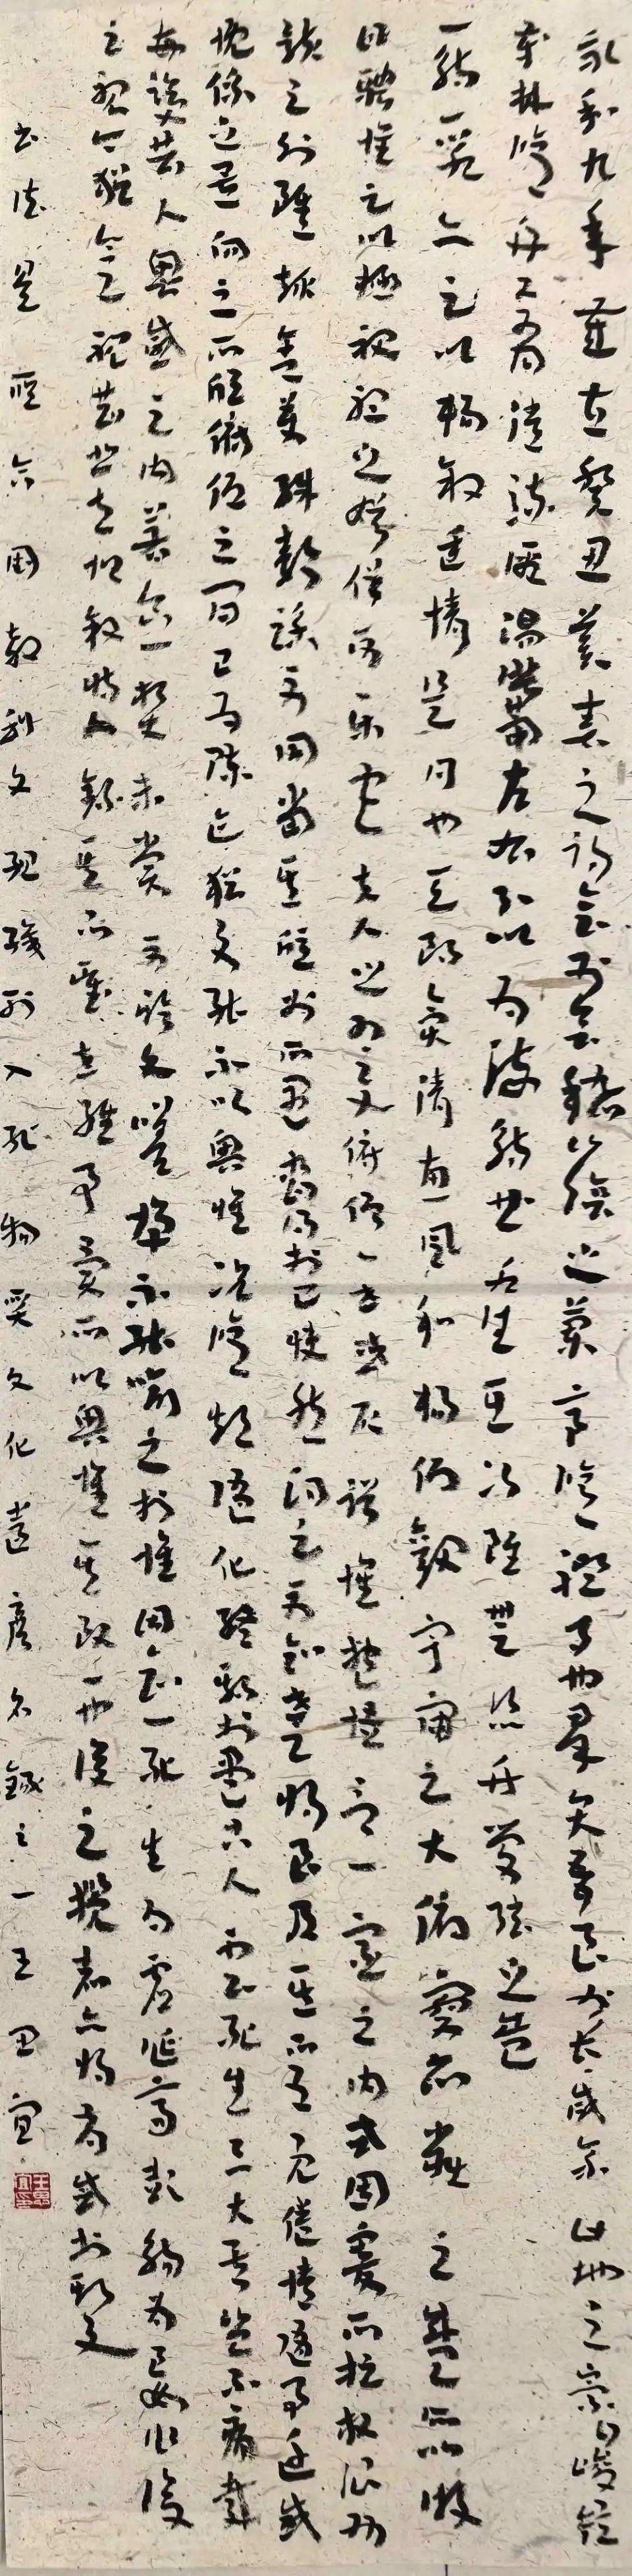 永和九年歲在癸丑暮春之初會於會稽山陰之蘭亭脩禊事也羣賢畢至少長咸集此地有崇山峻領
茂林脩竹又有清流激湍暎帶左右引以為流觴曲水列坐其次雖無絲竹管弦之盛
一觴一詠亦足以暢敘幽情是日也天朗氣清惠風和暢仰觀宇宙之大俯察品類之盛所以遊
目騁懷足以極視聽之娛信可樂也夫人之相與俯仰一世或取諸懷抱悟言一室之內或因寄所託放浪形
骸之外雖趣舍萬殊靜躁不同當其欣於所遇暫得於己快然自足不知老之將至及其所之既倦情隨事遷感
慨係之矣向之所欣俛仰之間已為陳迹猶不能不以之興懷況脩短隨化終期於盡古人云死生亦大矣豈不痛哉
每覽昔人興感之由若合一契未嘗不臨文嗟悼不能喻之於懷固知一死生為虛誕齊彭殤為妄作後
之視今猶今之視昔悲夫故列敘時人錄其所述雖世殊事異所以興懷其致一也後之攬者亦將有感於斯文
書法是聯合國教科文組織列入非物質文化遺產名錄之一王思宜
王思宜印